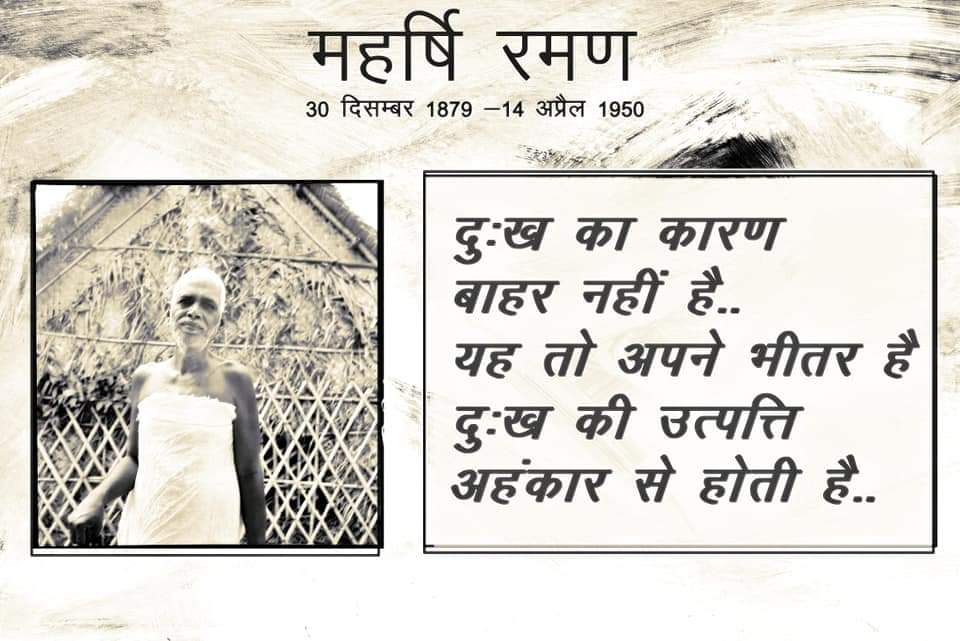 महर्षि रमण
30 दिसम्बर 1879 –14 अप्रैल 1950
दुःख का कारण
बाहर नहीं है..
यह तो अपने भीतर है
दुःख की उत्पत्ति
अहंकार से होती है..